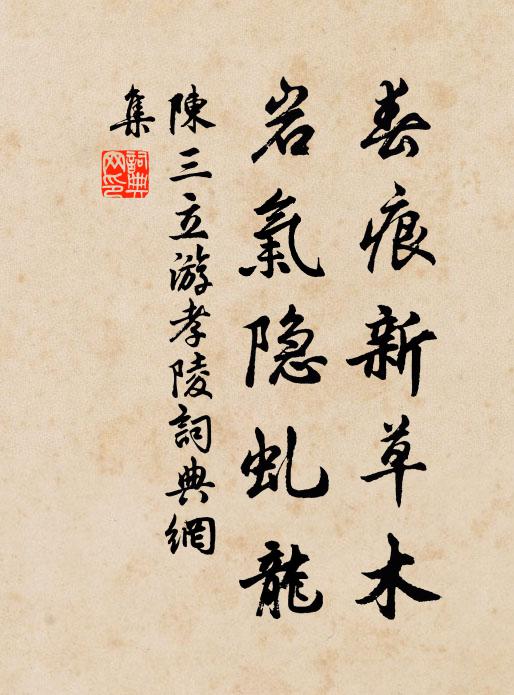 春痕新草木
岩氣隐虬龍
陳三立游孝陵詞典網
集
詞典網印